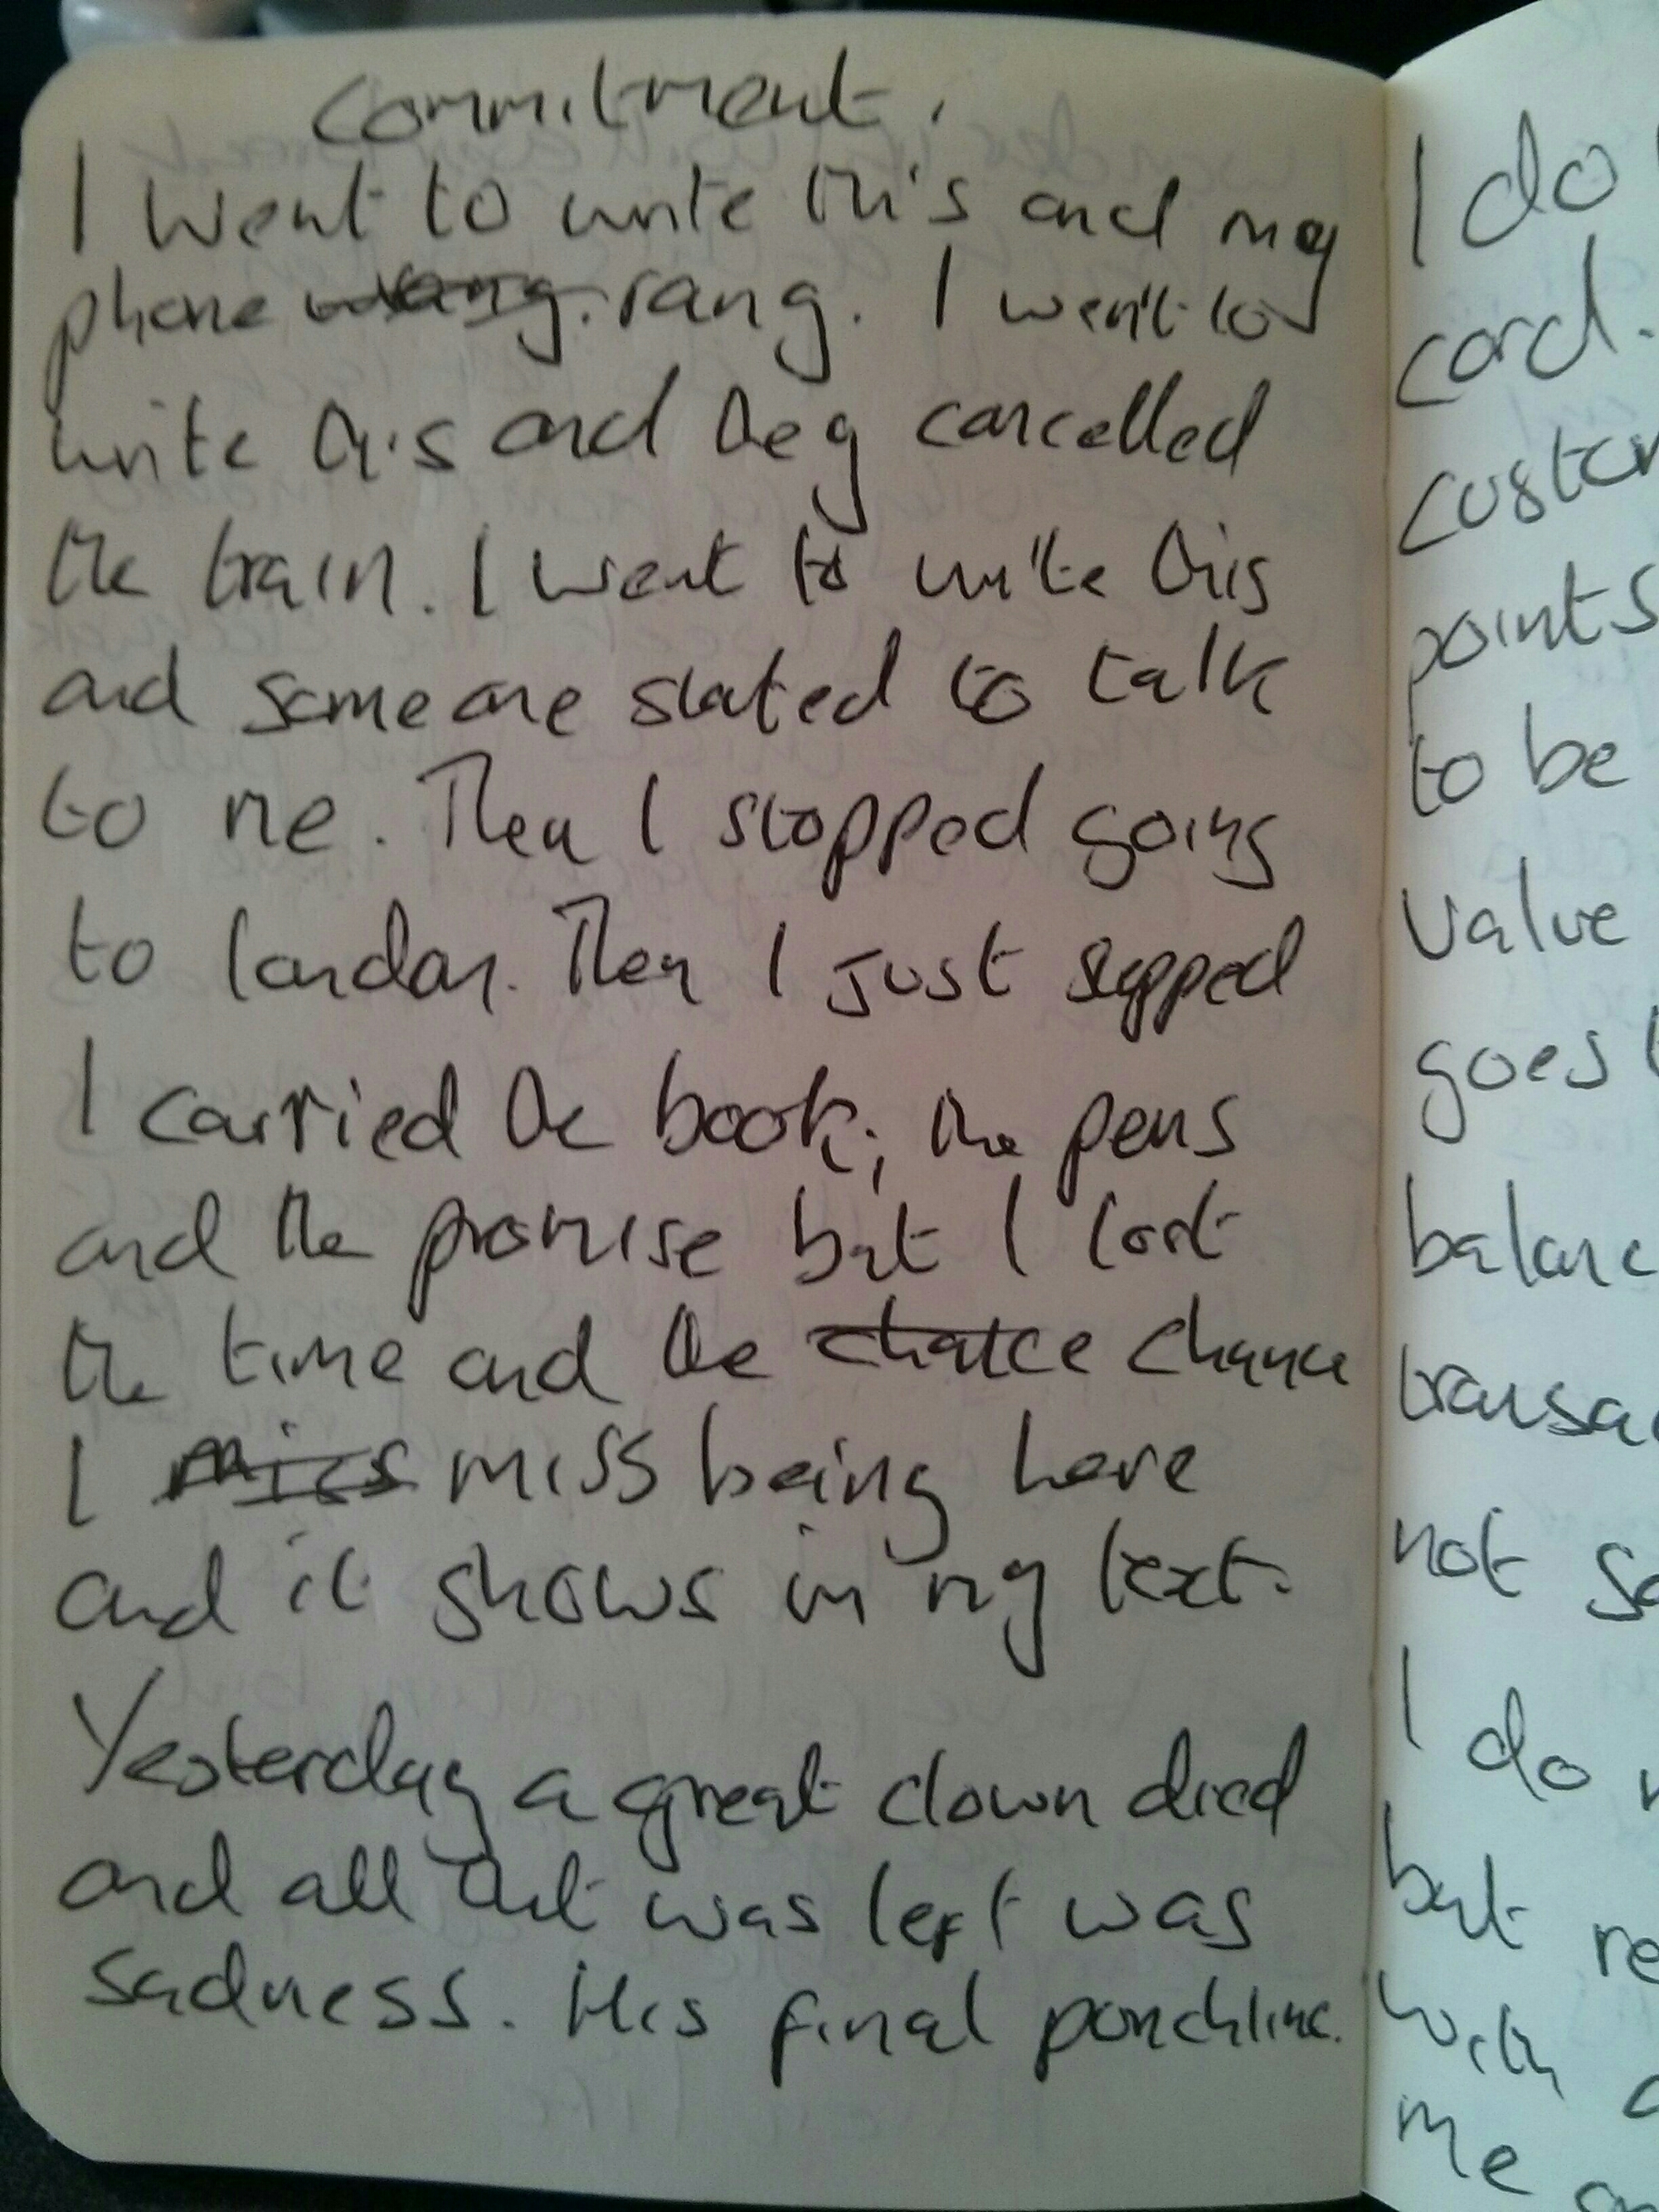 Commitment.
I went to write this and my
phone rang. I went to
write this and they cancelled
the train. I went to write this
and someone stated to talk
to me. Then I stopped going
to london. Then I just stopped
I carried the book, the pens
and the promise but I lost
the time and the chance chance
I miss miss being here
and it shows in my text.
Yesterday a great clown died
and all that was left was
sadness. His final punchline.
I do
card.
custom
points
to be
value
goes
balanc
transac
not so
I do n
but re
with
me